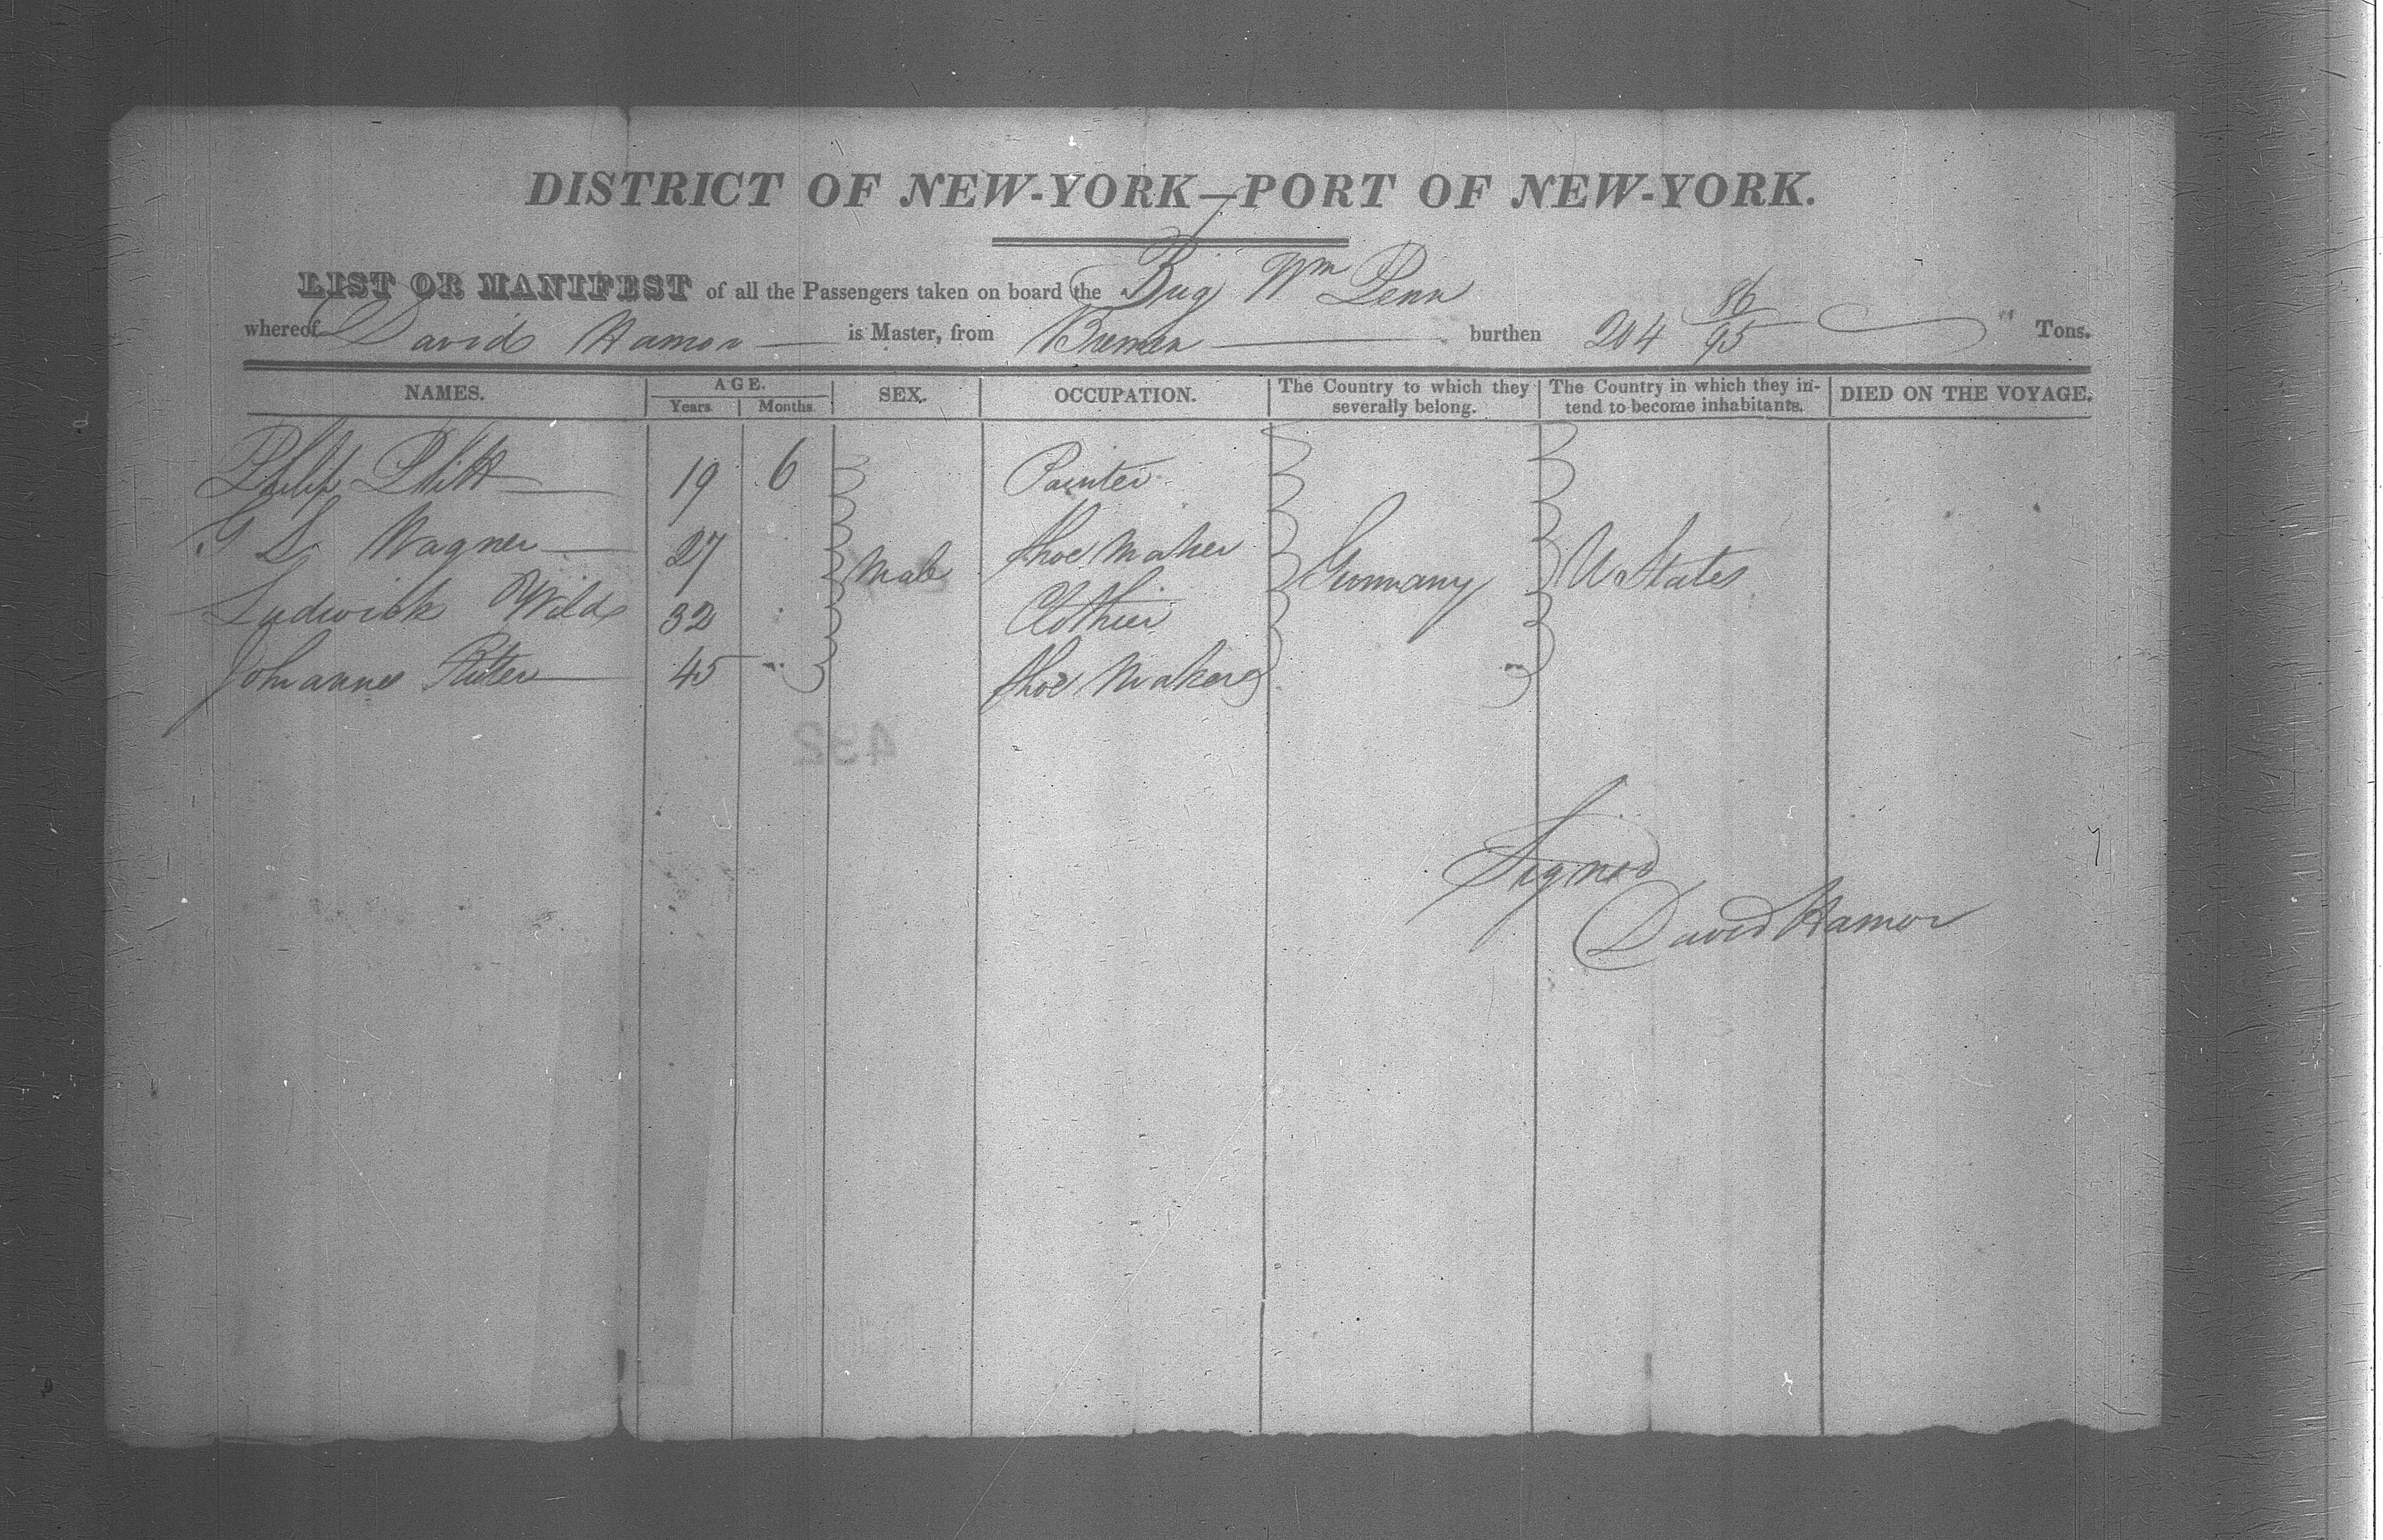 DISTRICT OF NEW-YORK—PORT OF NEW-YORK.
LIST OR MANIFEST of all the Passengers taken on board the Brig Wm Penn
whereof David Hamor is Master, from Bremen burthen 204 86/95 Tons.
NAMES. AGE. Years Months SEX. OCCUPATION. The Country to which they severally belong. The Country in which they intend to become inhabitants. DIED ON THE VOYAGE.
Philip Plitt 19 6 Painter
G L Wagner 27 Shoe Maker
Male Germany U States
Ludwick Wild 32 Clothier
Johannes 45 Shoe Maker
432
Signed
David Hamor